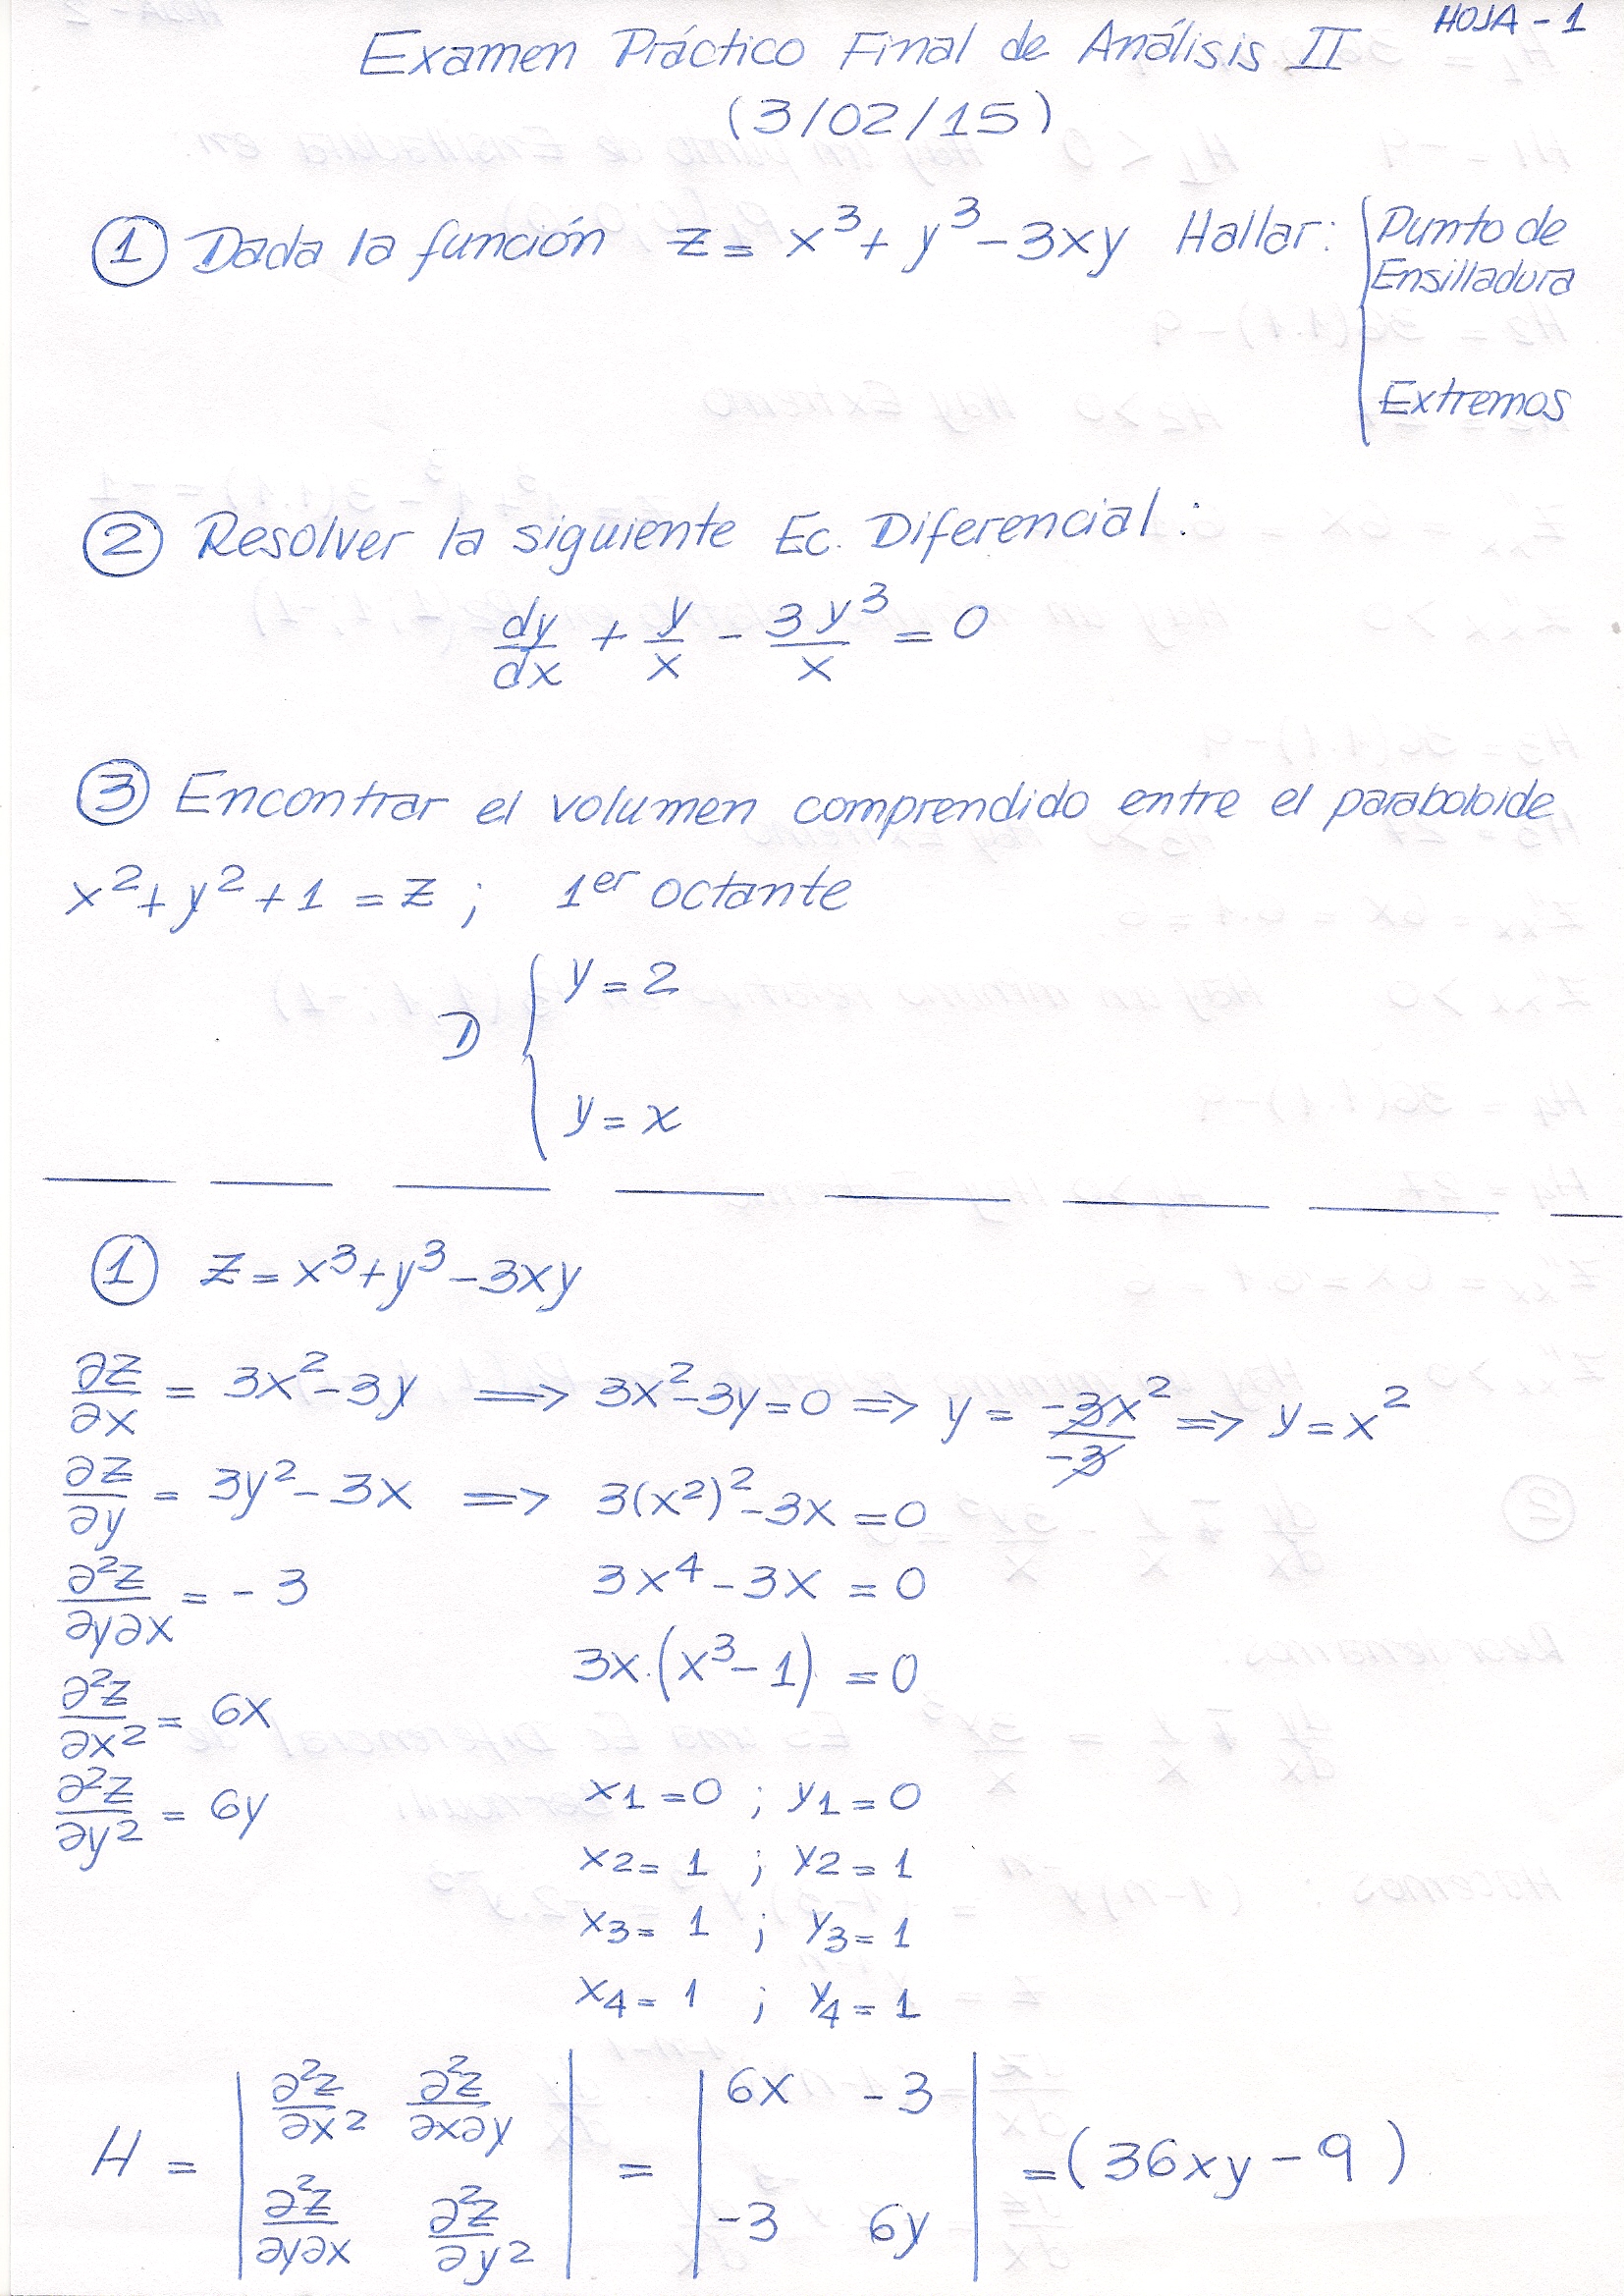 HOJA - 1
Examen Práctico Final de Análisis II
(3/02/15)
① Dada la función z = x³ + y³ - 3xy Hallar: { Punto de
Ensilladura
Extremos
② Resolver la siguiente Ec. Diferencial:
dy/dx + y/x - 3y³/x = 0
③ Encontrar el volumen comprendido entre el paraboloide
x² + y² + 1 = z ; 1er octante
D { y = 2
y = x
① z = x³ + y³ - 3xy
∂z/∂x = 3x² - 3y ⟹ 3x² - 3y = 0 ⟹ y = -3x²/-3 ⟹ y = x²
∂z/∂y = 3y² - 3x ⟹ 3(x²)² - 3x = 0
∂²z/∂y∂x = - 3 3x⁴ - 3x = 0
3x.(x³ - 1) = 0
∂²z/∂x² = 6x
∂²z/∂y² = 6y x1 = 0 ; y1 = 0
x2 = 1 ; y2 = 1
x3 = 1 ; y3 = 1
x4 = 1 ; y4 = 1
H = | ∂²z/∂x² ∂²z/∂x∂y | = | 6x - 3 | = (36xy - 9)
| ∂²z/∂y∂x ∂²z/∂y² | | -3 6y |